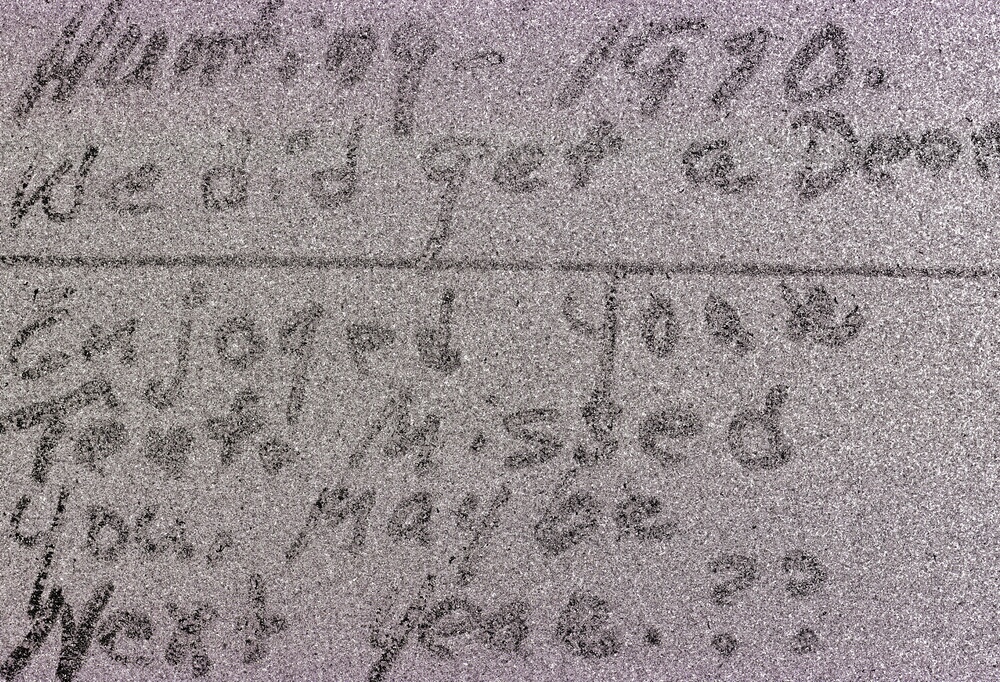 Hunting - 1970.
We did get a
Enjoyed your
Tent. Missed
you, May be
Next year. ??